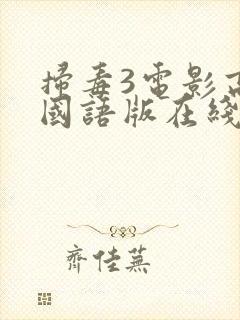 掃毒3電影高
國語版在綫
齊佳蕪